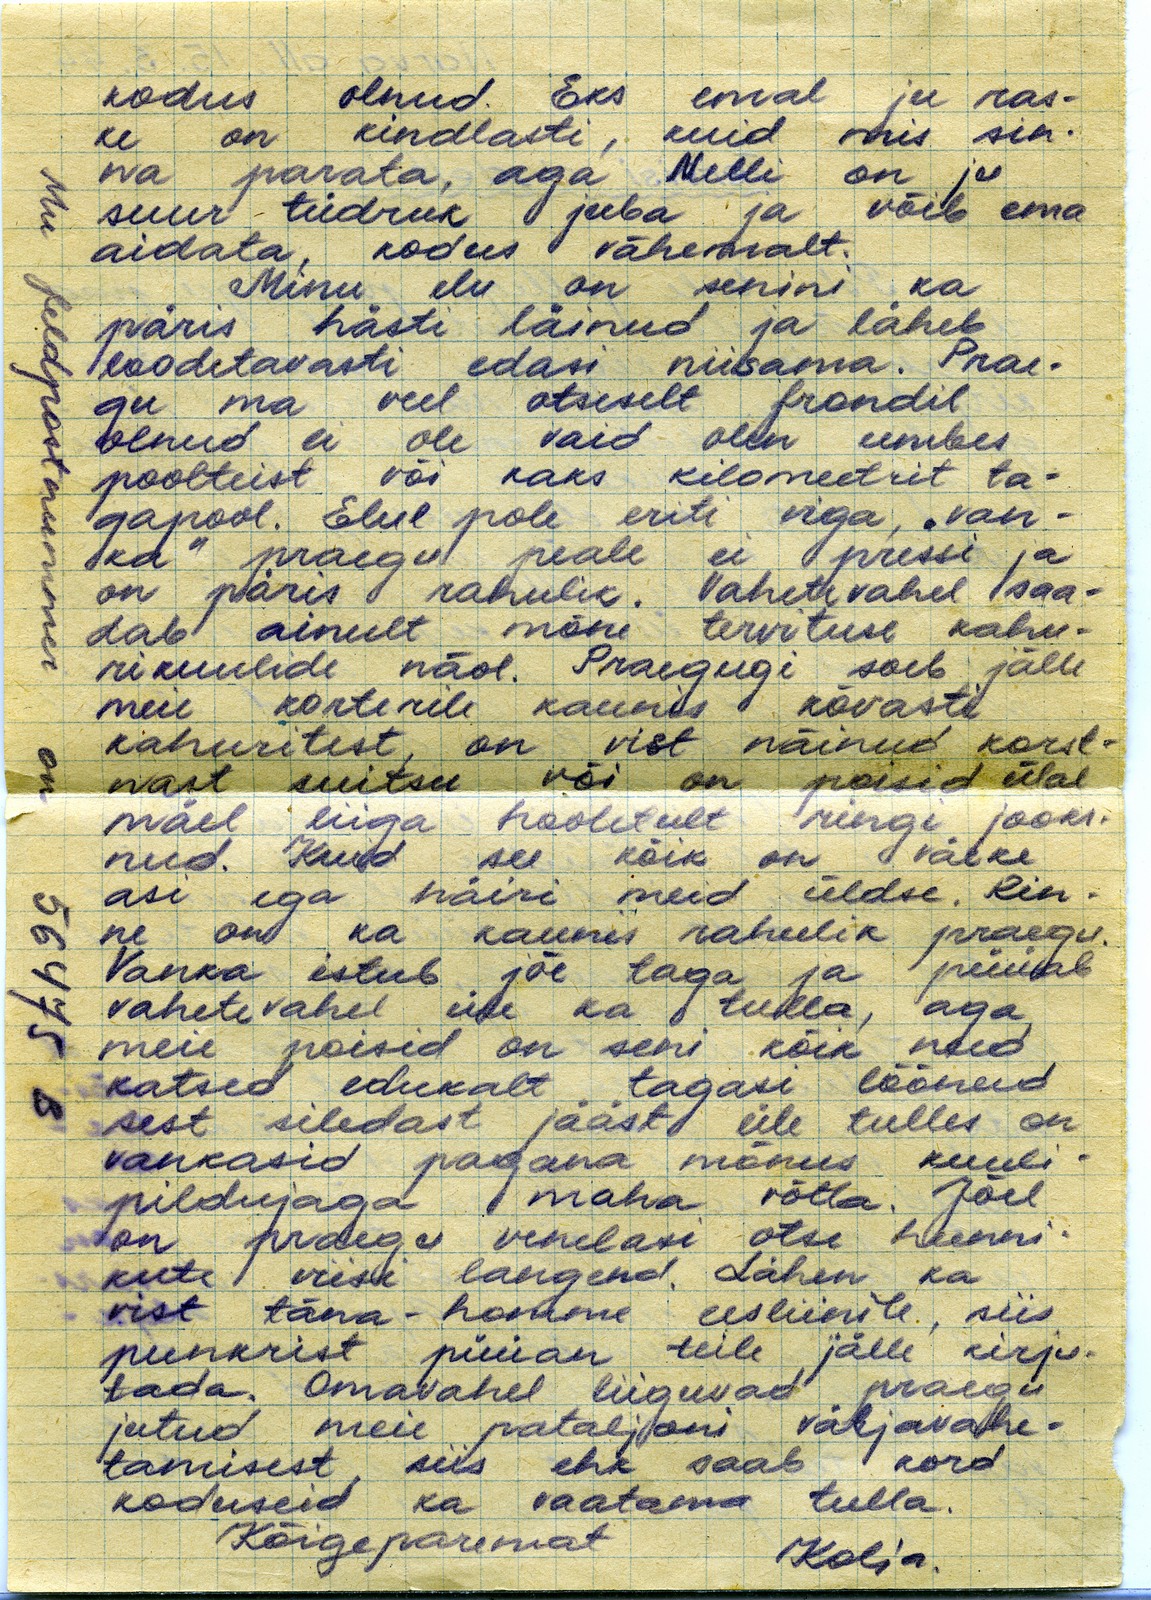 kodus olnud. Eks emal ju ras-
ke on kindlasti, kuid mis sin-
na parata, aga Nelli on ju
suur tüdruk juba ja võib ema
aidata, kodus vähemalt.
Minu elu on senini ka
päris hästi läinud ja läheb
loodetavasti edasi niisama. Prae-
gu ma veel otseselt frondil
olnud ei ole vaid olen umbes
poolteist või kaks kilomeetrit ta-
gapool. Elul pole eriti viga, „van-
ka" praegu peale ei pressi ja
on päris rahulik. Vahetevahel saa-
dab ainult mõne tervituse kahu-
rikuulide näol. Praegugi soeb jälle
meie korterile kaunis kõvasti
kahuritest, on vist näinud korst-
nast suitsu või on poisid ülal
mäel liiga hooletult ringi jooks-
nud. Kuid see kõik on väike
asi ega häiri meid üldse. Rin-
ne on ka kaunis rahulik praegu.
Vanka istub jõe taga ja püüab
vahetevahel üle ka tulla, aga
meie poisid on seni kõik need
katsed edukalt tagasi löönud
sest siledast jääst üle tulles on
vankasid pagana mõnus kuuli-
pildujaga maha võtta. Jõel
on praegu venelasi otse hunni-
kute viisi langend. Lähen ka
vist täna-homme eesliinile, siis
punkrist püüan teile jälle kirju-
tada. Omavahel liiguvad praegu
jutud meie pataljoni väljavahe-
tamisest, siis ehk saab kord
koduseid ka vaatama tulla.
Kõigeparemat
Kolja.
Mu feldpostnummer on 56475 B